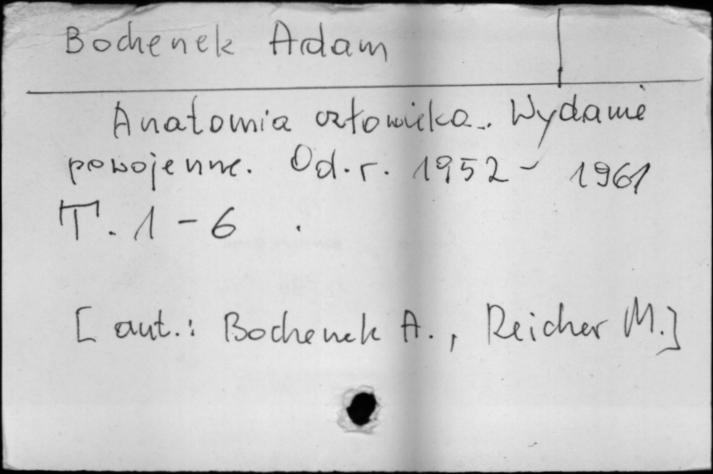 Bochenek Adam
Anatomia człowieka. Wydanie
powojenne. Od.r. 1952 - 1961
T. 1 - 6 .
[aut.: Bochenek A., Reicher M.]